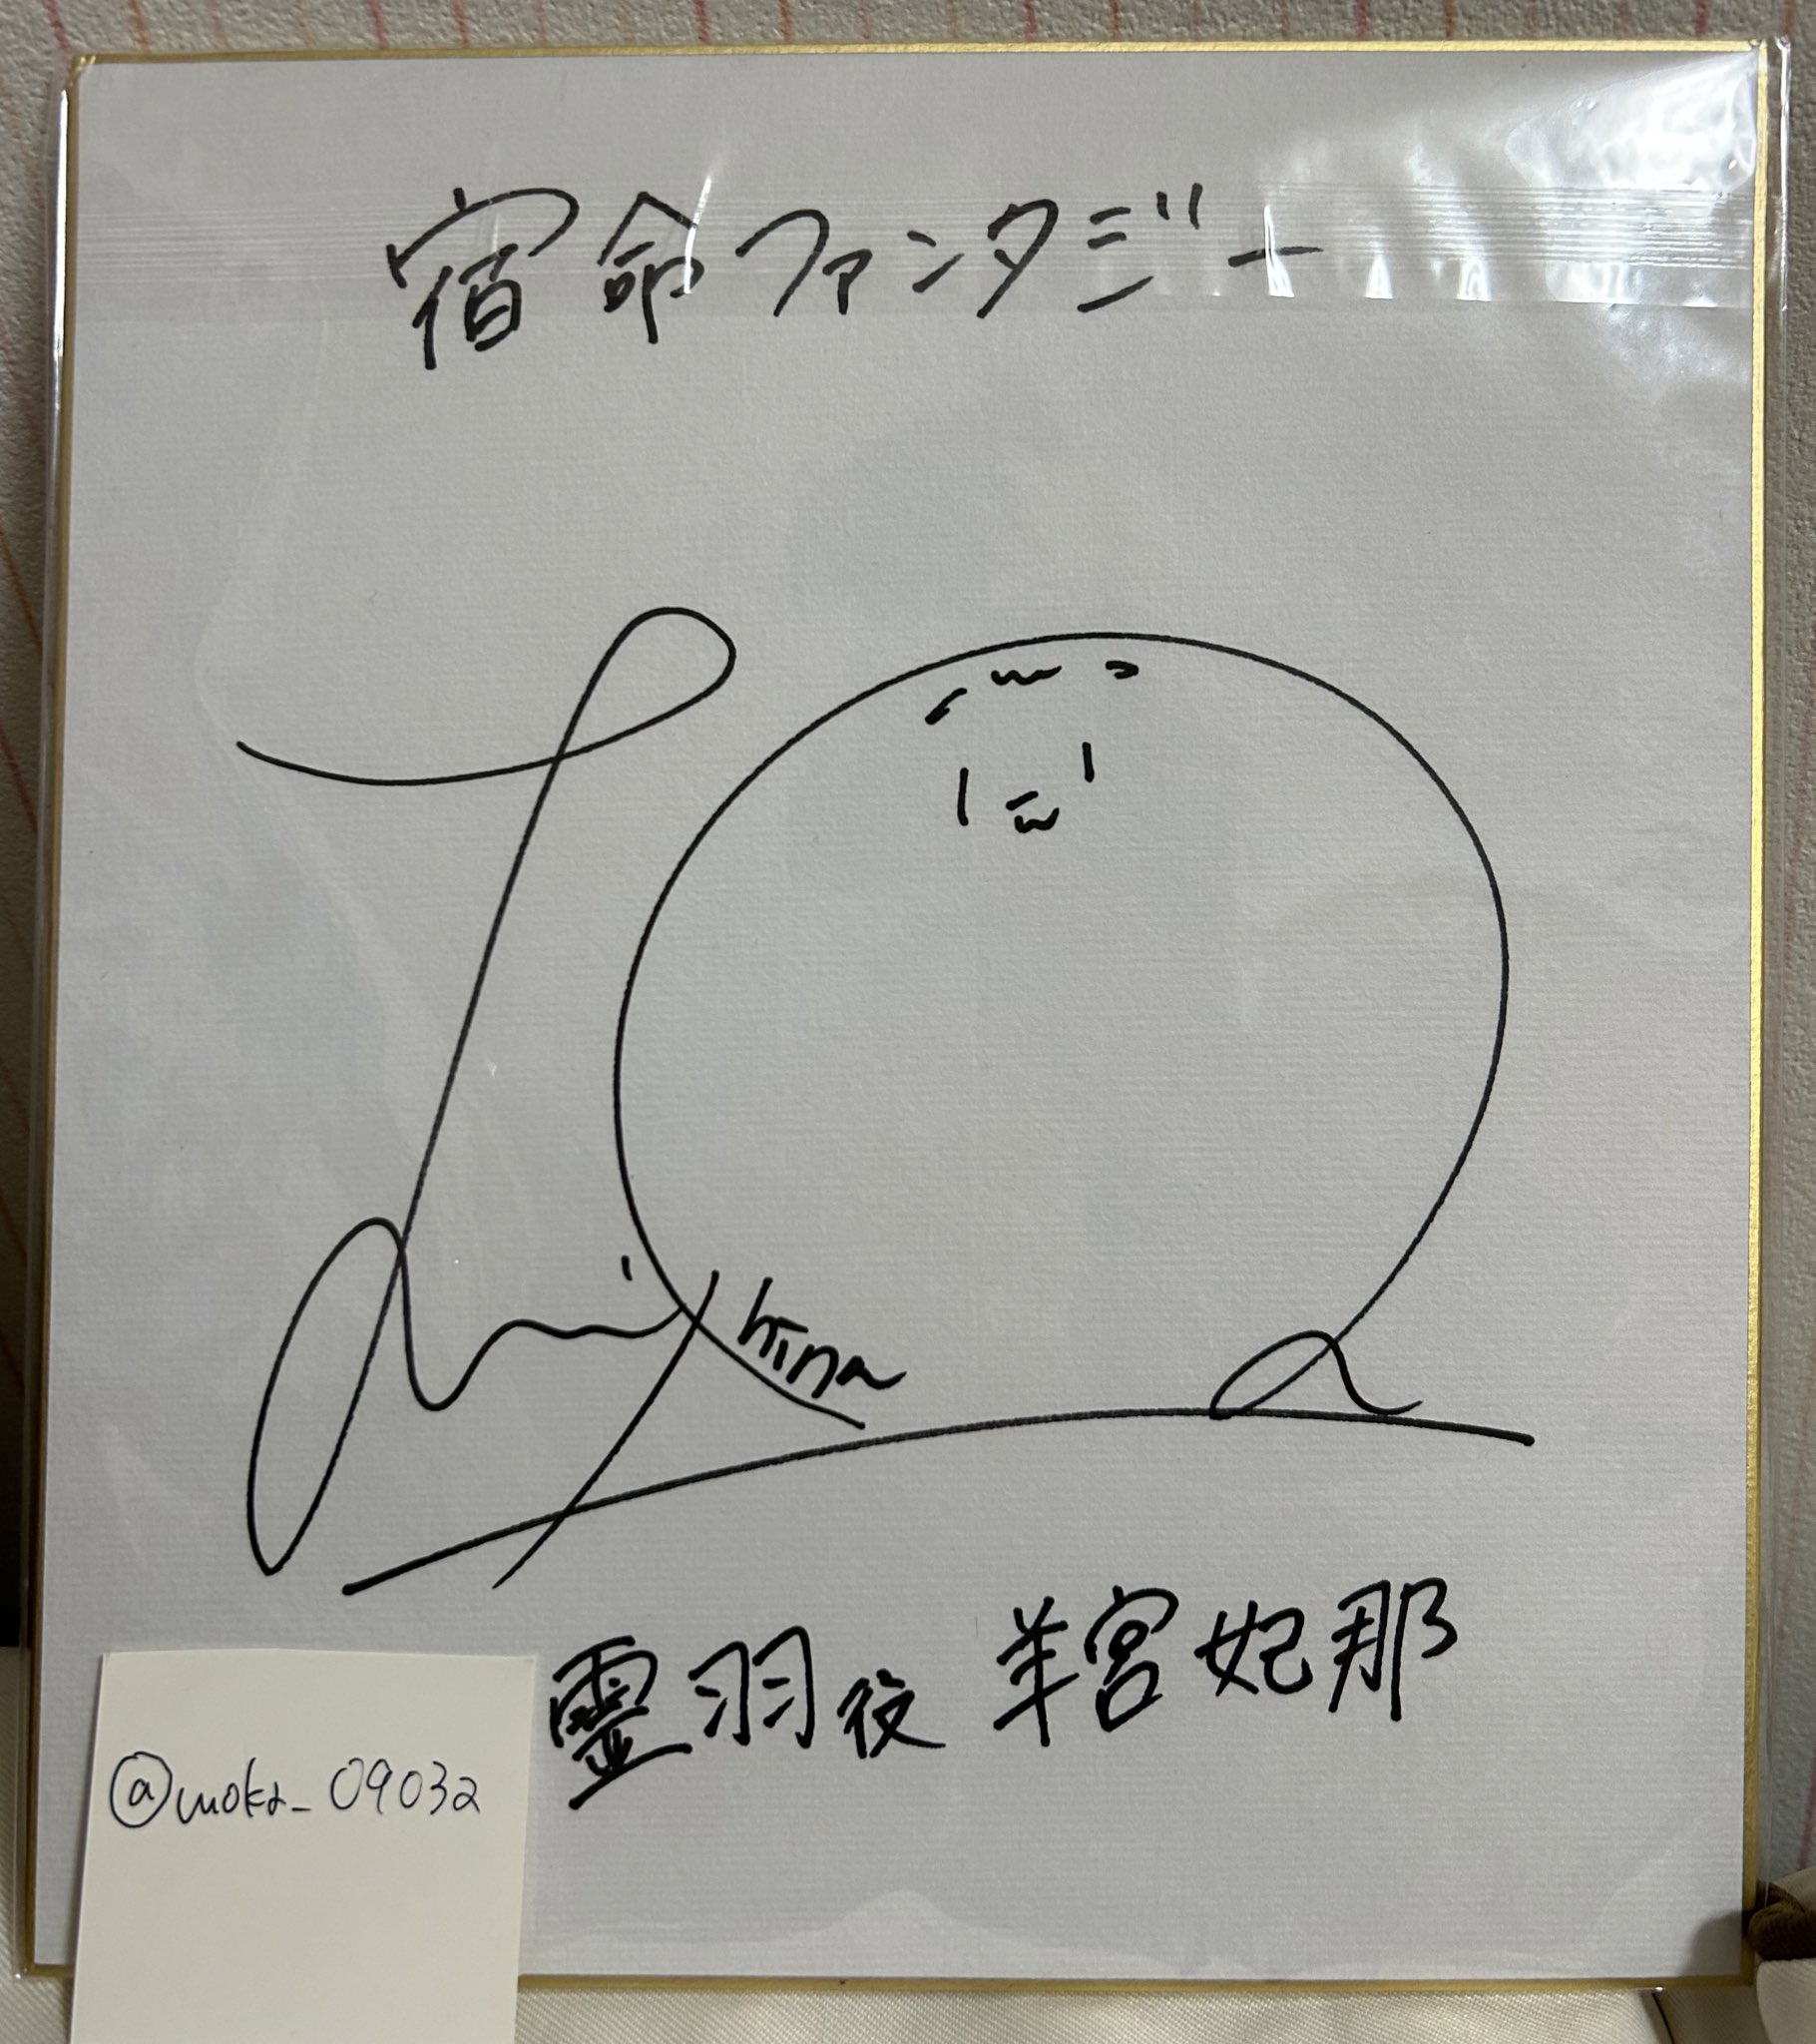 宿命ファンタジー
hina
霊羽役 羊宮妃那
@moka_09032